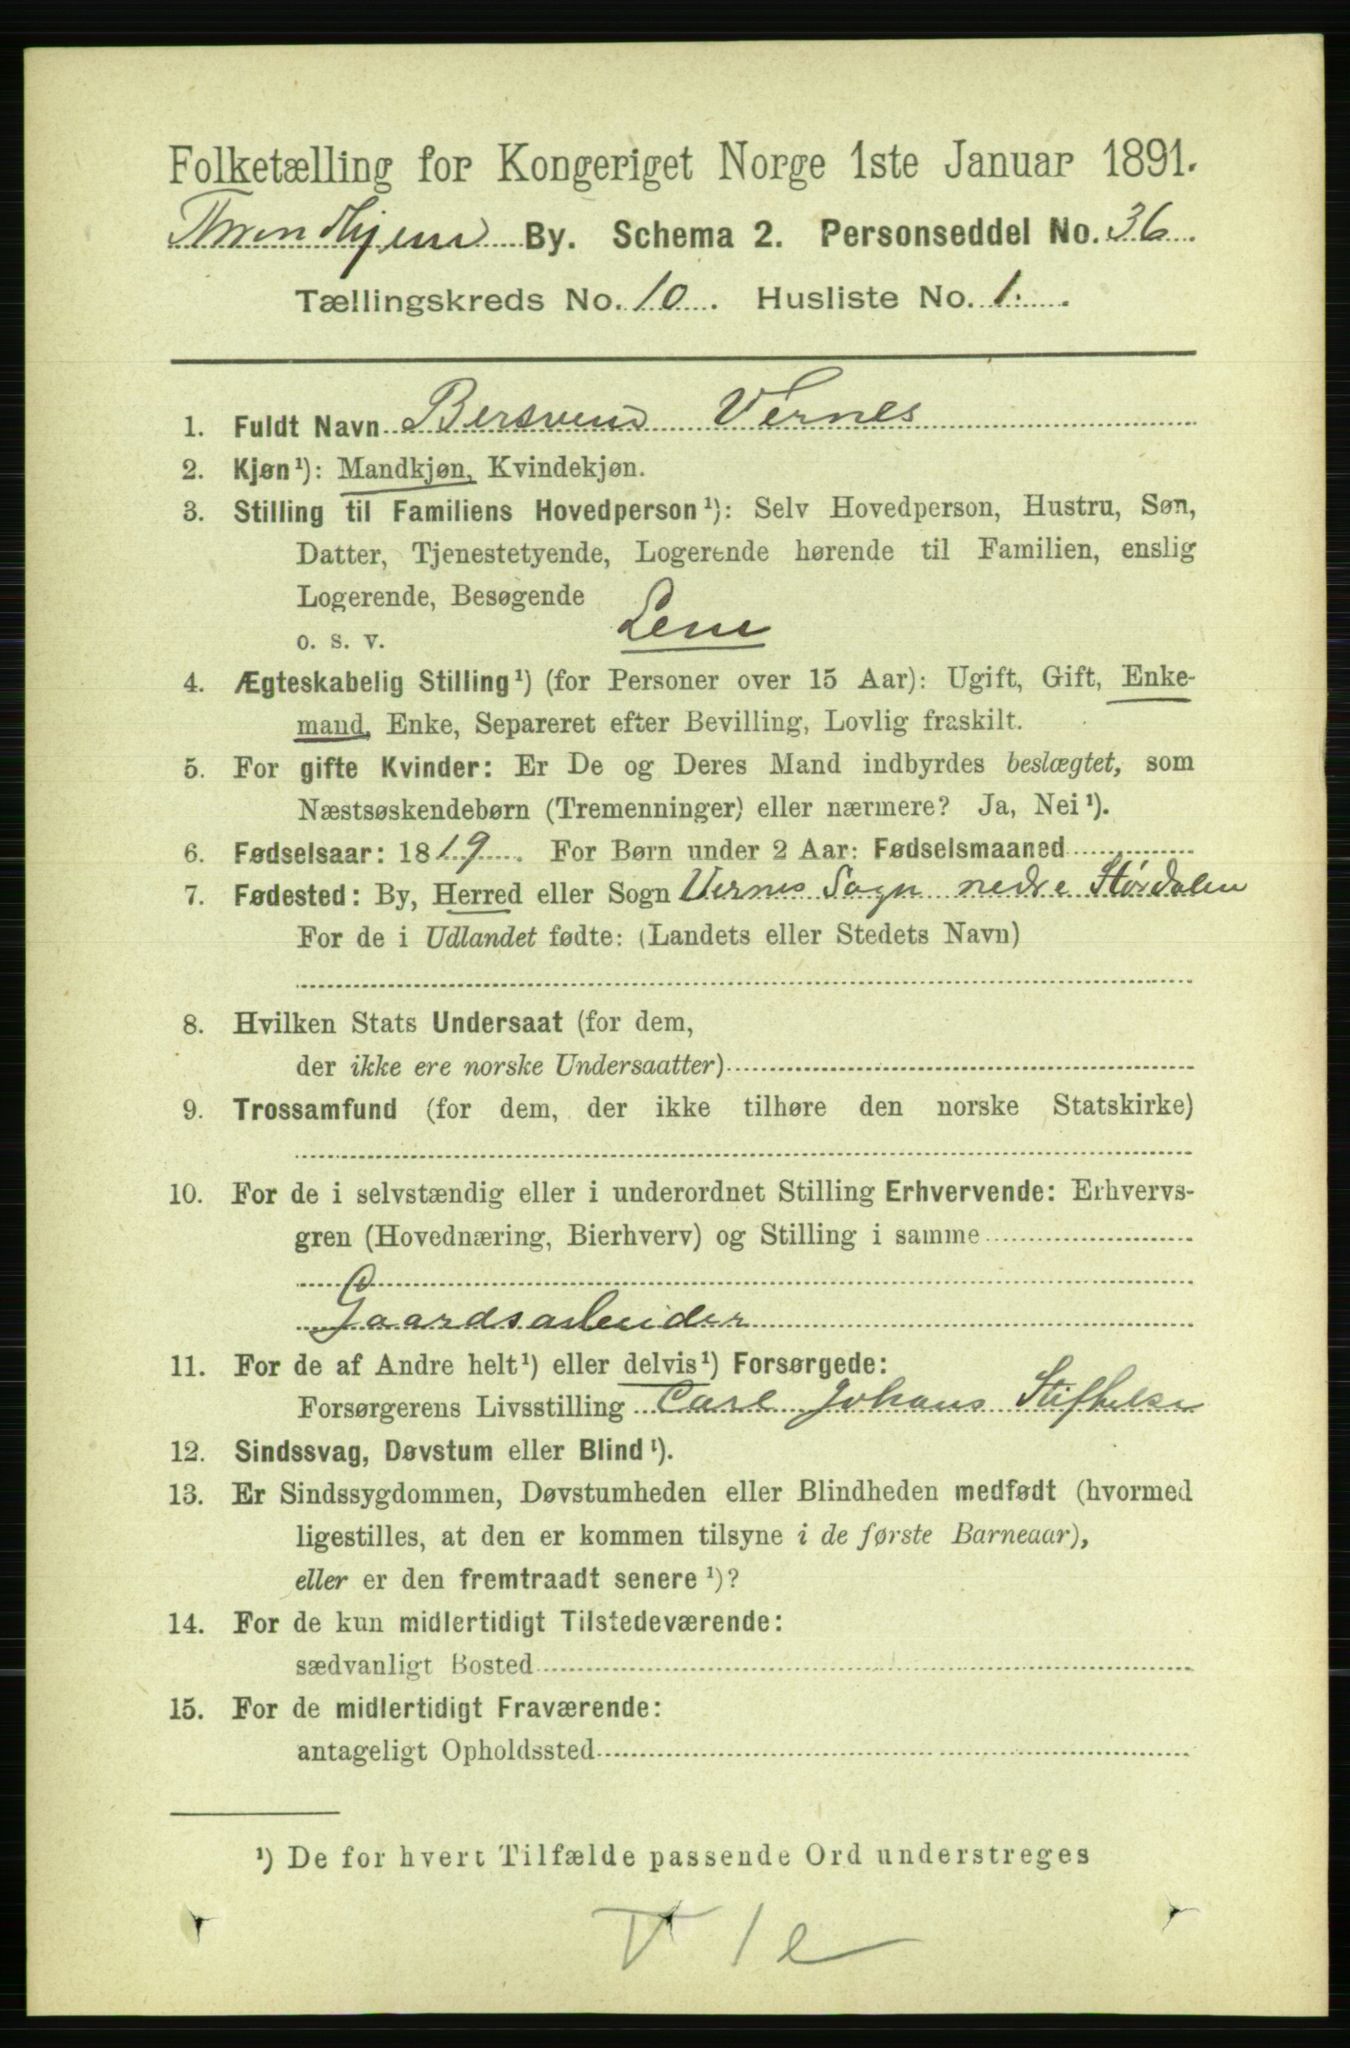 Folketælling for Kongeriget Norge 1ste Januar 1891.
Throndhjem By. Schema 2. Personseddel No. 36.
Tællingskreds No. 10. Husliste No. 1.
1. Fuldt Navn Bersvend Vernes
2. Kjøn¹): Mandkjøn, Kvindekjøn.
3. Stilling til Familiens Hovedperson¹): Selv Hovedperson, Hustru, Søn,
Datter, Tjenestetyende, Logerende hørende til Familien, enslig
Logerende, Besøgende
o. s. v. Lem
4. Ægteskabelig Stilling¹) (for Personer over 15 Aar): Ugift, Gift, Enke-
mand, Enke, Separeret efter Bevilling, Lovlig fraskilt.
5. For gifte Kvinder: Er De og Deres Mand indbyrdes beslægtet, som
Næstsøskendebørn (Tremenninger) eller nærmere? Ja, Nei¹).
6. Fødselsaar: 1819. For Børn under 2 Aar: Fødselsmaaned
7. Fødested: By, Herred eller Sogn Vernes Sogn nedre Størdalen
For de i Udlandet fødte: (Landets eller Stedets Navn)
8. Hvilken Stats Undersaat (for dem,
der ikke ere norske Undersaatter)
9. Trossamfund (for dem, der ikke tilhøre den norske Statskirke)
10. For de i selvstændig eller i underordnet Stilling Erhvervende: Erhvervs-
gren (Hovednæring, Bierhverv) og Stilling i samme
Gaardsarbeider
11. For de af Andre helt¹) eller delvis¹) Forsørgede:
Forsørgerens Livsstilling Carl Johans Stiftelse
12. Sindssvag, Døvstum eller Blind¹).
13. Er Sindssygdommen, Døvstumheden eller Blindheden medfødt (hvormed
ligestilles, at den er kommen tilsyne i de første Barneaar),
eller er den fremtraadt senere¹)?
14. For de kun midlertidigt Tilstedeværende:
sædvanligt Bosted
15. For de midlertidigt Fraværende:
antageligt Opholdssted
¹) De for hvert Tilfælde passende Ord understreges